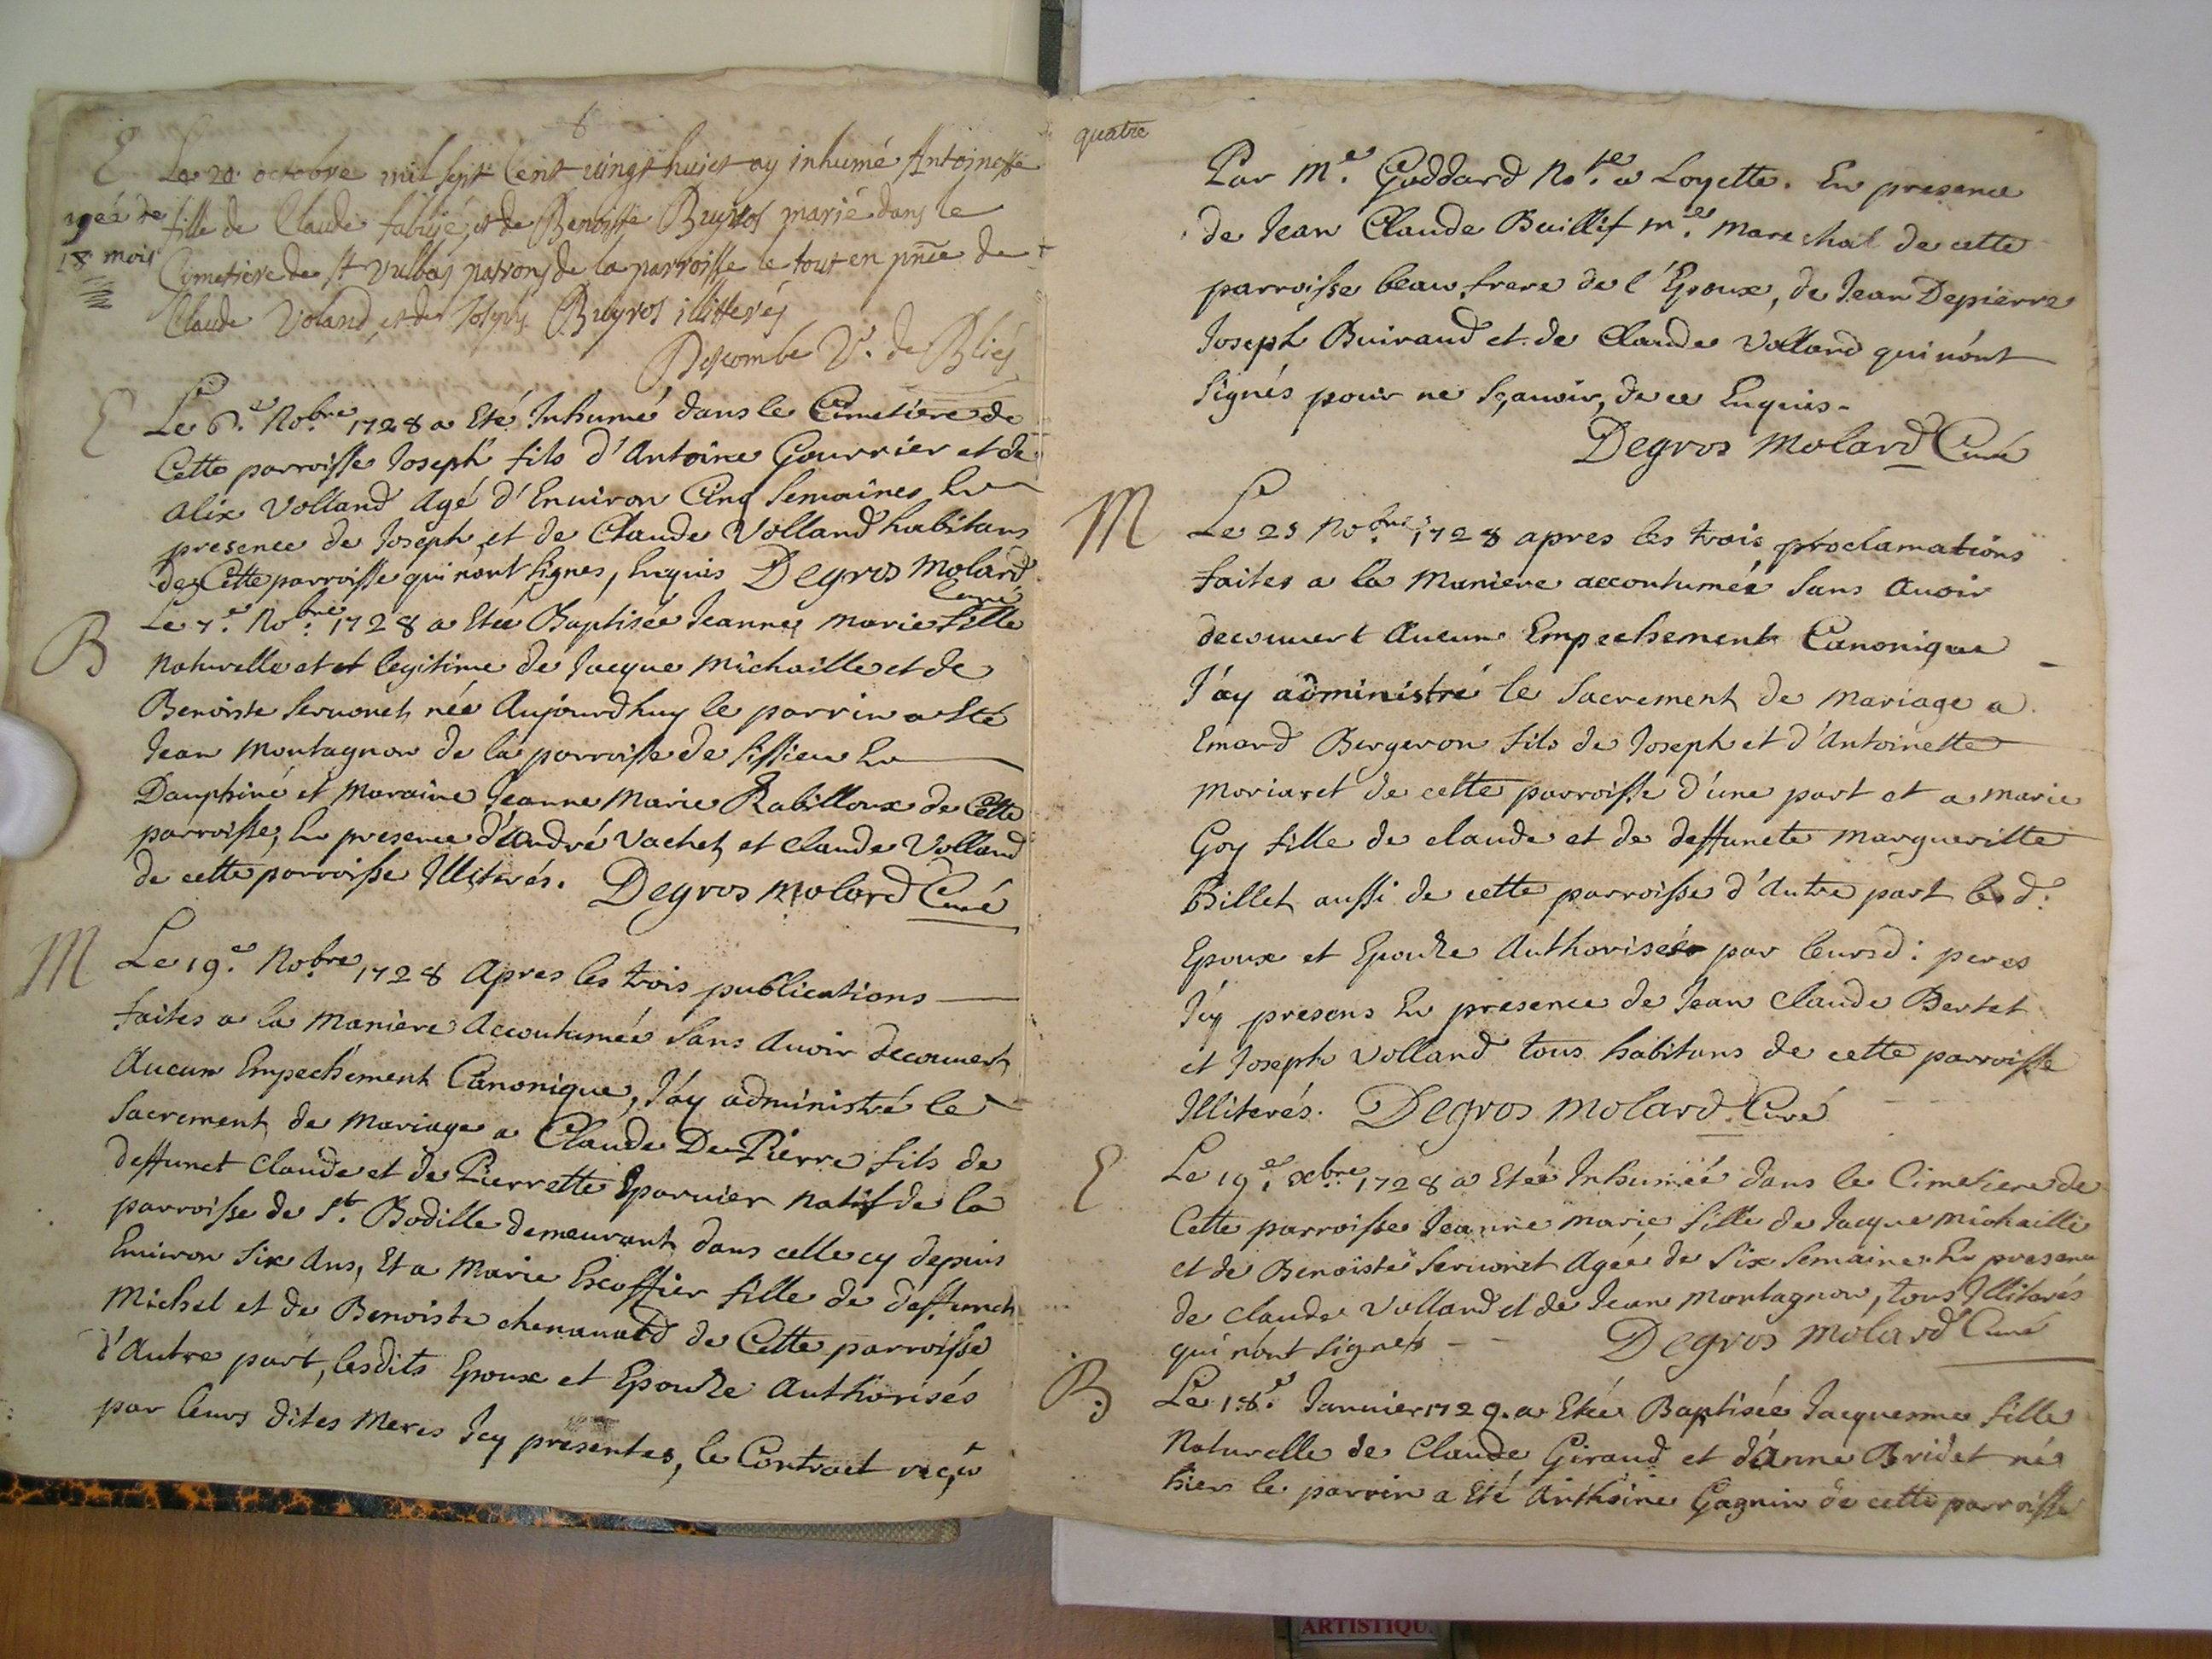 8
E
Le 20 octobre mil sept Cent vingt huict ay inhumé Antoinette
agée de
18 mois
fille de Claude et de Benoitte Buyros marié dans le
Cimetiere de St Vulbas patrons de la parroisse le tout en pnce de
Claude Voland, et de Joseph Buyros illitterés
Descombe V. de Blies
E
Le 6.e No.bre 1728 a Eté Inhumé dans le Cimetiere de
Cette parroisse Joseph fils d'Antoine Gourrier et de
Alix Volland Agé d'Environ Cinq Semaines En
presence de Joseph et de Claude Volland habitans
de Cette parroisse qui nont signes, Enquis Degros Molard
Curé
B
Le 7.e No.bre 1728 a Etee Baptisée Jeanne Marie fille
Naturelle et et legitime de Jacque Michaille et de
Benoiste Servonet née Aujourdhuy le parrin a Eté
Jean Montagnon de la parroisse de Sissieu En
Dauphiné et Maraine Jeanne Marie Rabilloux de Cette
parroisse, En presence d'André Vachet et Claude Volland
de cette parroisse Illiterés. Degros Molard Curé
M
Le 19.e No.bre 1728 Apres les trois publications
faites a la Maniere Accoutumée Sans Avoir decouvert
Aucun Empechement Canonique, J'ay administré le
Sacrement de Mariage a Claude De Pierre fils de
deffunct Claude et de Pierrette Eparvier Natif de la
parroisse de St. Bodille demeurant dans celle cy depuis
Environ Six Ans, Et a Marie Escoffier fille de deffunct
Michel et de Benoiste de Cette parroisse
d'Autre part, lesdits Epoux et Epouze Authorisés
par leurs dites Meres Icy presentes, le Contract reçu
quatre
Par M.e Goddard No.re a Loyette. En presence
de Jean Claude Buillif m.e Marechal de cette
parroisse beau frere de l'Epoux, de Jean Depierre
Joseph Buiraud et de Claude Volland qui n'ont
Signés pour ne Sçavoir, de ce Enquis-
Degros Molard Curé
M
Le 25 No.bre 1728 apres les trois proclamations
faites a la Maniere accoutumée Sans Avoir
decouvert Aucun Empechement Canonique
J'ay administré le Sacrement de Mariage a
Emard Bergeron fils de Joseph et d'Antoinette
Moriaret de cette parroisse d'une part et a Marie
Goy fille de Claude et de deffuncte Margueritte
Billet aussi de cette parroisse d'Autre part les d:
Epoux et Epouze Authorisés par leursd: peres
Icy presens En presence de Jean Claude Bertet
et Joseph Volland tous habitans de cette parroisse
Illiterés. Degros Molard Curé
E
Le 19.e Xbre 1728 a Eteé Inhumée dans le Cimetiere de
Cette parroisse Jeanne Marie fille de Jacque Michaille
et de Benoiste Servonet Agée de Six Semaines En presence
de Claude Volland et de Jean Montagnon, tous Illiterés
qui n'ont signes - - Degros Molard Curé
B
Le 18.e Janvier 1729. a Etée Baptisée Jacquesme fille
Naturelle de Claude Giraud et d'Anne Bridet née
hier le parrin a Eté Anthoine Gagnin de cette parroisse
ARTISTIQU